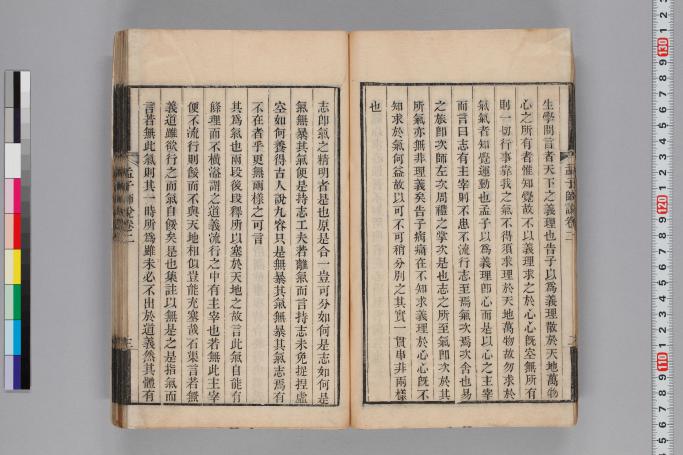 生學問言者天下之義理也告子以爲義理散於天地萬物
心之所有者惟知覺故不以義理求之於心心既空無所有
則一切行事靠我之氣不得須求理於天地萬物故勿求於
氣氣者知覺運動也孟子以爲義理即心而是以心之主宰
而言曰志有主宰則不患不流行志至焉氣次焉次舍也易
之旅即次師左次周禮之掌次是也志之所至氣即次於其
所氣亦無非理義矣告子病痛在不知求義理於心心既不
知求於氣何益故以可不可稍分別之其實一貫串非兩樣
也
志即氣之精明者是也原是合一豈可分如何是志如何是
氣無暴其氣便是持志工夫若離氣而言持志未免捉捏虛
空如何養得古人說九容只是無暴其氣無暴其氣志焉有
不在者乎更無兩樣之可言
其爲氣也兩段後段釋所以塞於天地之故言此氣自能有
條理而不橫溢謂之道義流行之中有主宰也若無此主宰
便不流行則餒而不與天地相似豈能充塞哉石渠言若無
義道雖欲行之而氣自餒矣是也集註以無是之是指氣而
言若無此氣則其一時所爲雖未必不出於道義然其體有
孟子師說卷二
三